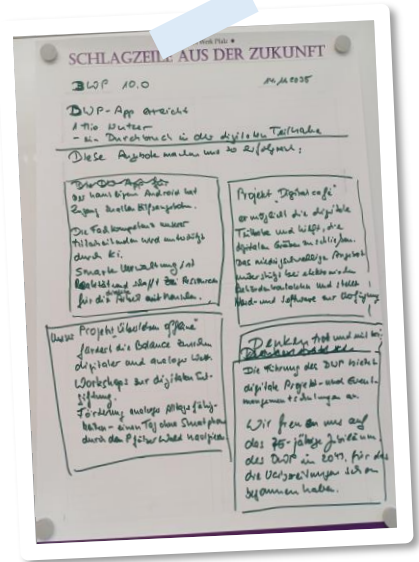 Werk Pfalz ★
SCHLAGZEILE AUS DER ZUKUNFT
BWP 10.0
BWP-App erreicht
1 Mio Nutzer
- ein Durchbruch in der digitalen Teilhabe
Diese Angebote machen uns so erfolgreich:
Der hauseigene Android hat
Zugang
Die Fachkompetenz unserer
wird unterstützt
durch KI.
Smarte Verwaltung ist
Realität und Ressourcen
für die Arbeit mit Menschen.
Projekt „Digitalcafé"
ermöglicht die digitale
Teilhabe und hilft, die
digitalen Gräben zu schließen.
Das niedrigschwellige Angebot
unterstützt bei
und stellt
Hard- und Software zur Verfügung!
Unser Projekt offline"
fördert die Balance zwischen
digitaler und analoger Welt.
Workshops zur digitalen Ent-
giftung.
Förderung analoge Alltagsfähig-
keiten - einen Tag ohne Smartphone
durch den Pfälzer Wald navigieren
Denken
Die Führung des BWP bietet
digitale Projekt- und
managemententscheidungen an.
Wir freuen uns auf
das 75-jährige Jubiläum
des BWP in 2047, für das
die Vorbereitungen schon
begonnen haben.